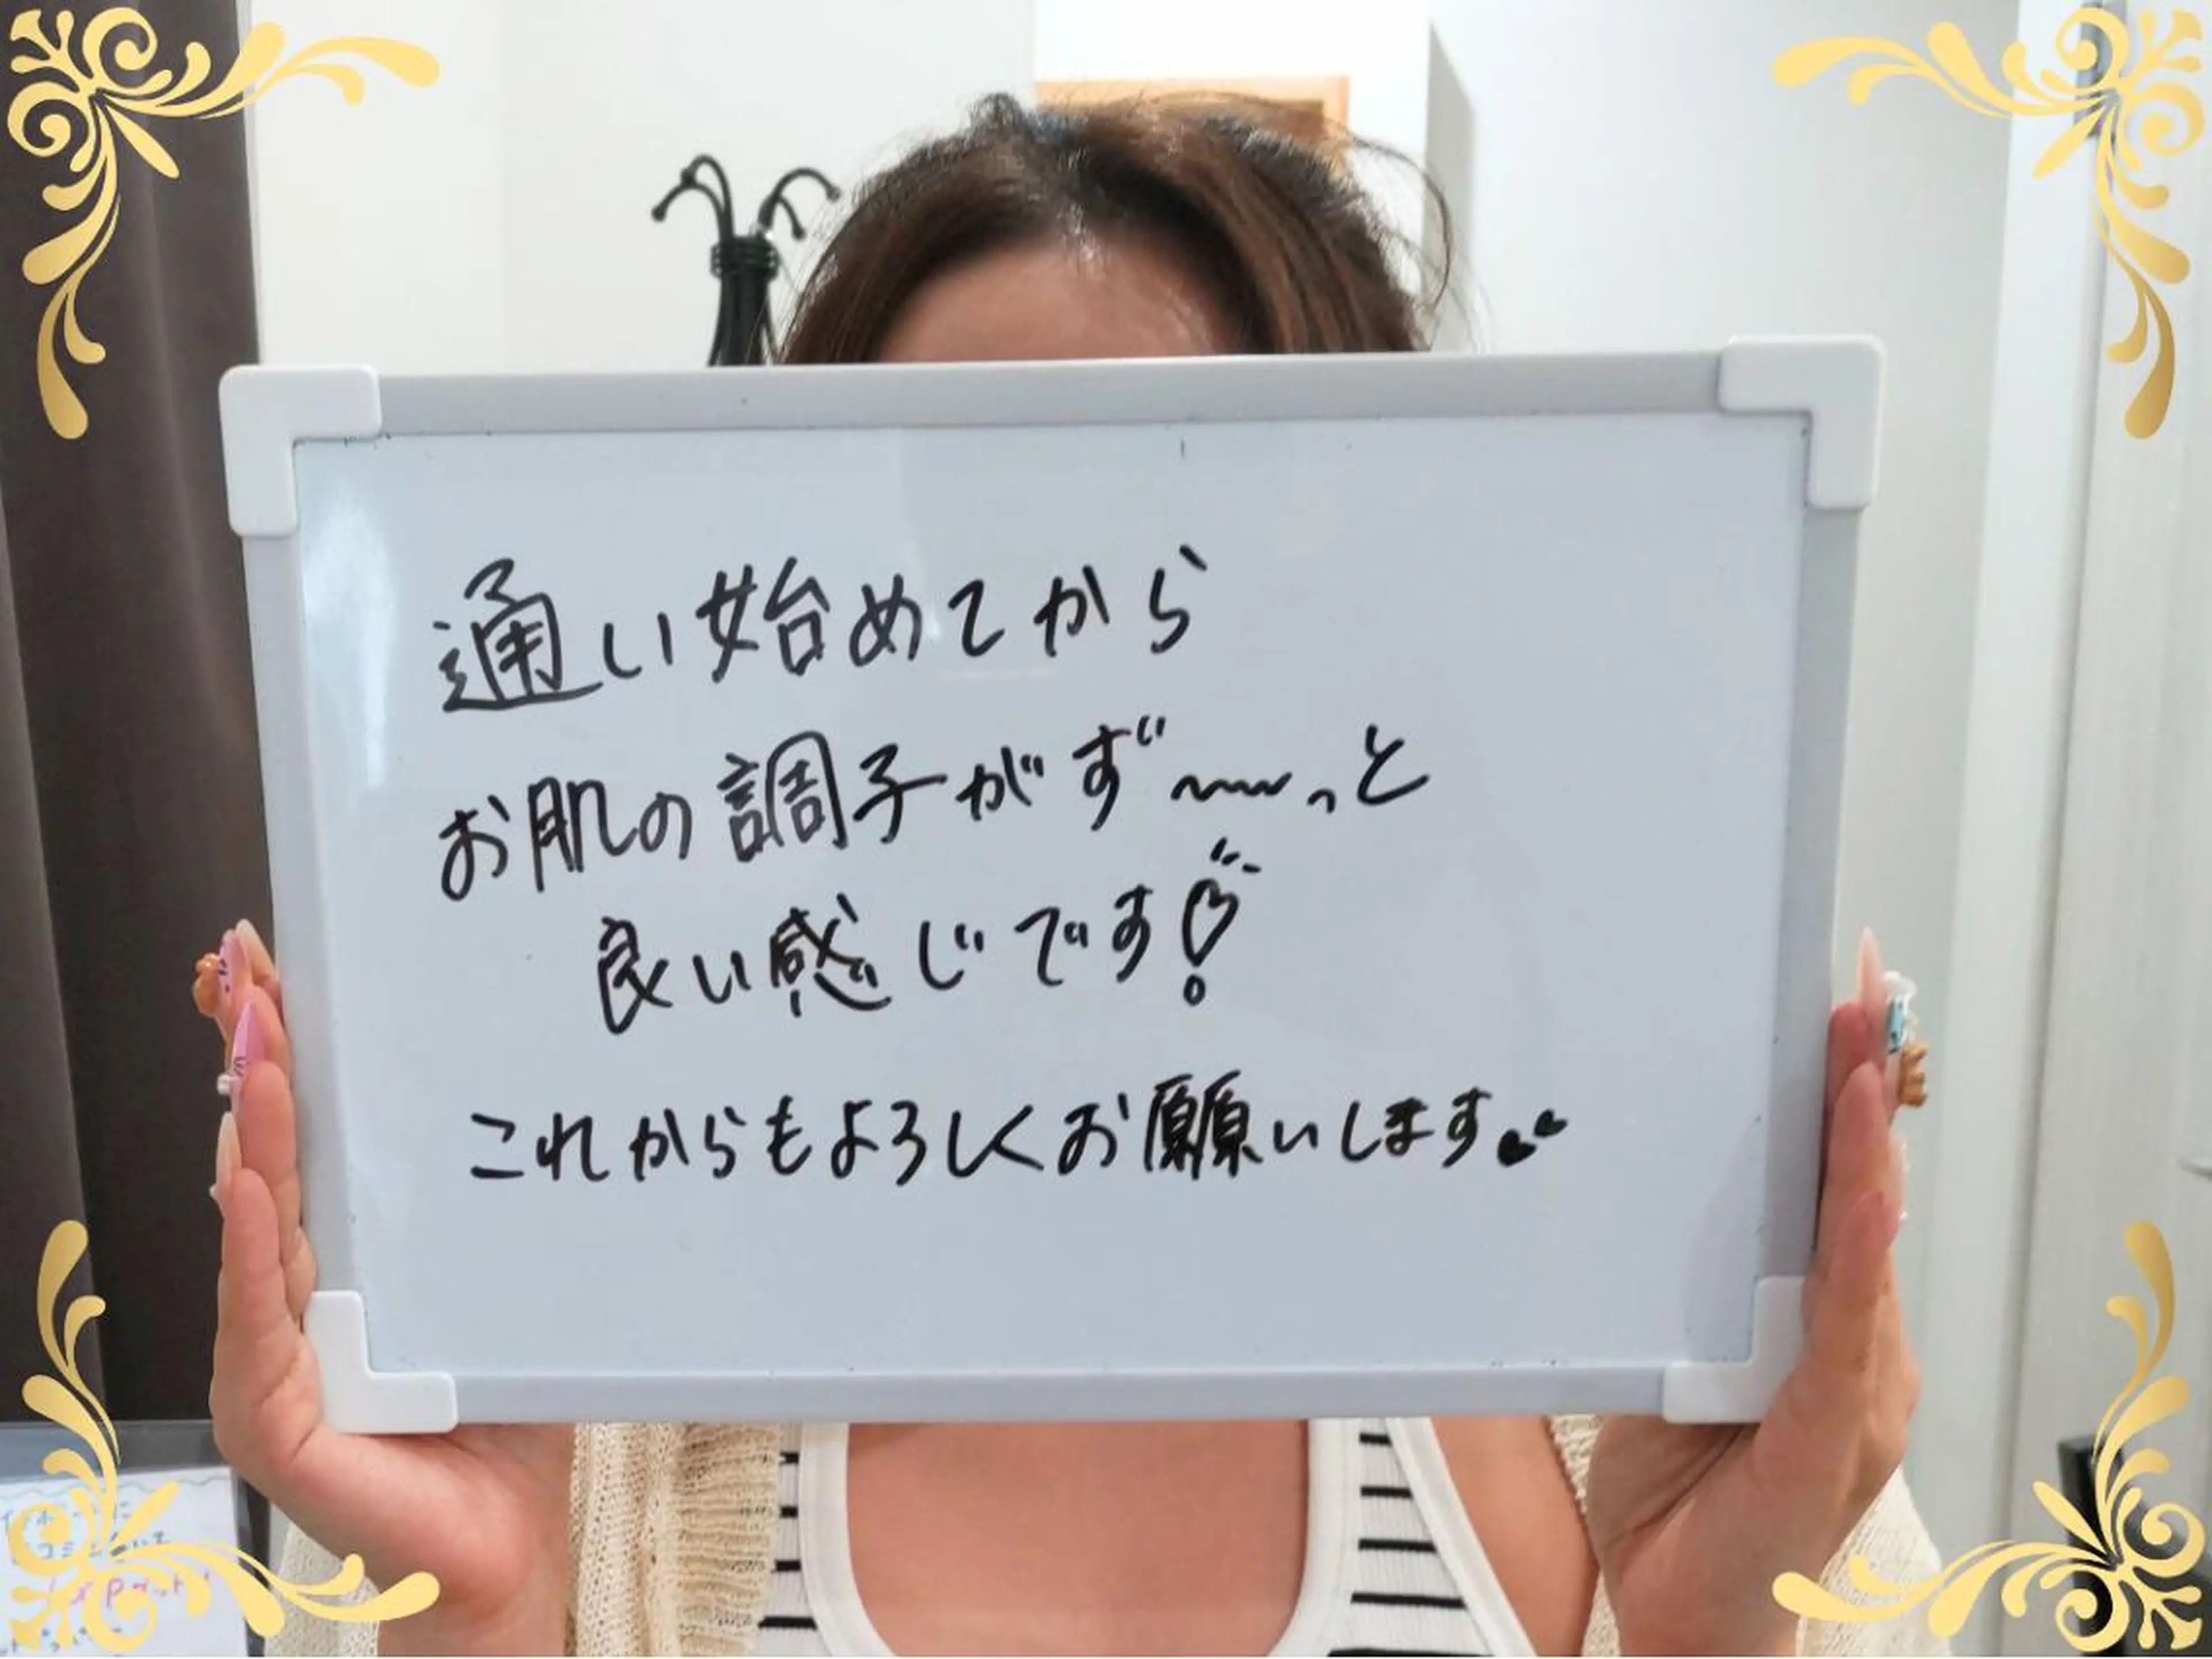 通い始めてから
お肌の調子がず〜〜っと
良い感じです♡
これからもよろしくお願いします♥♥